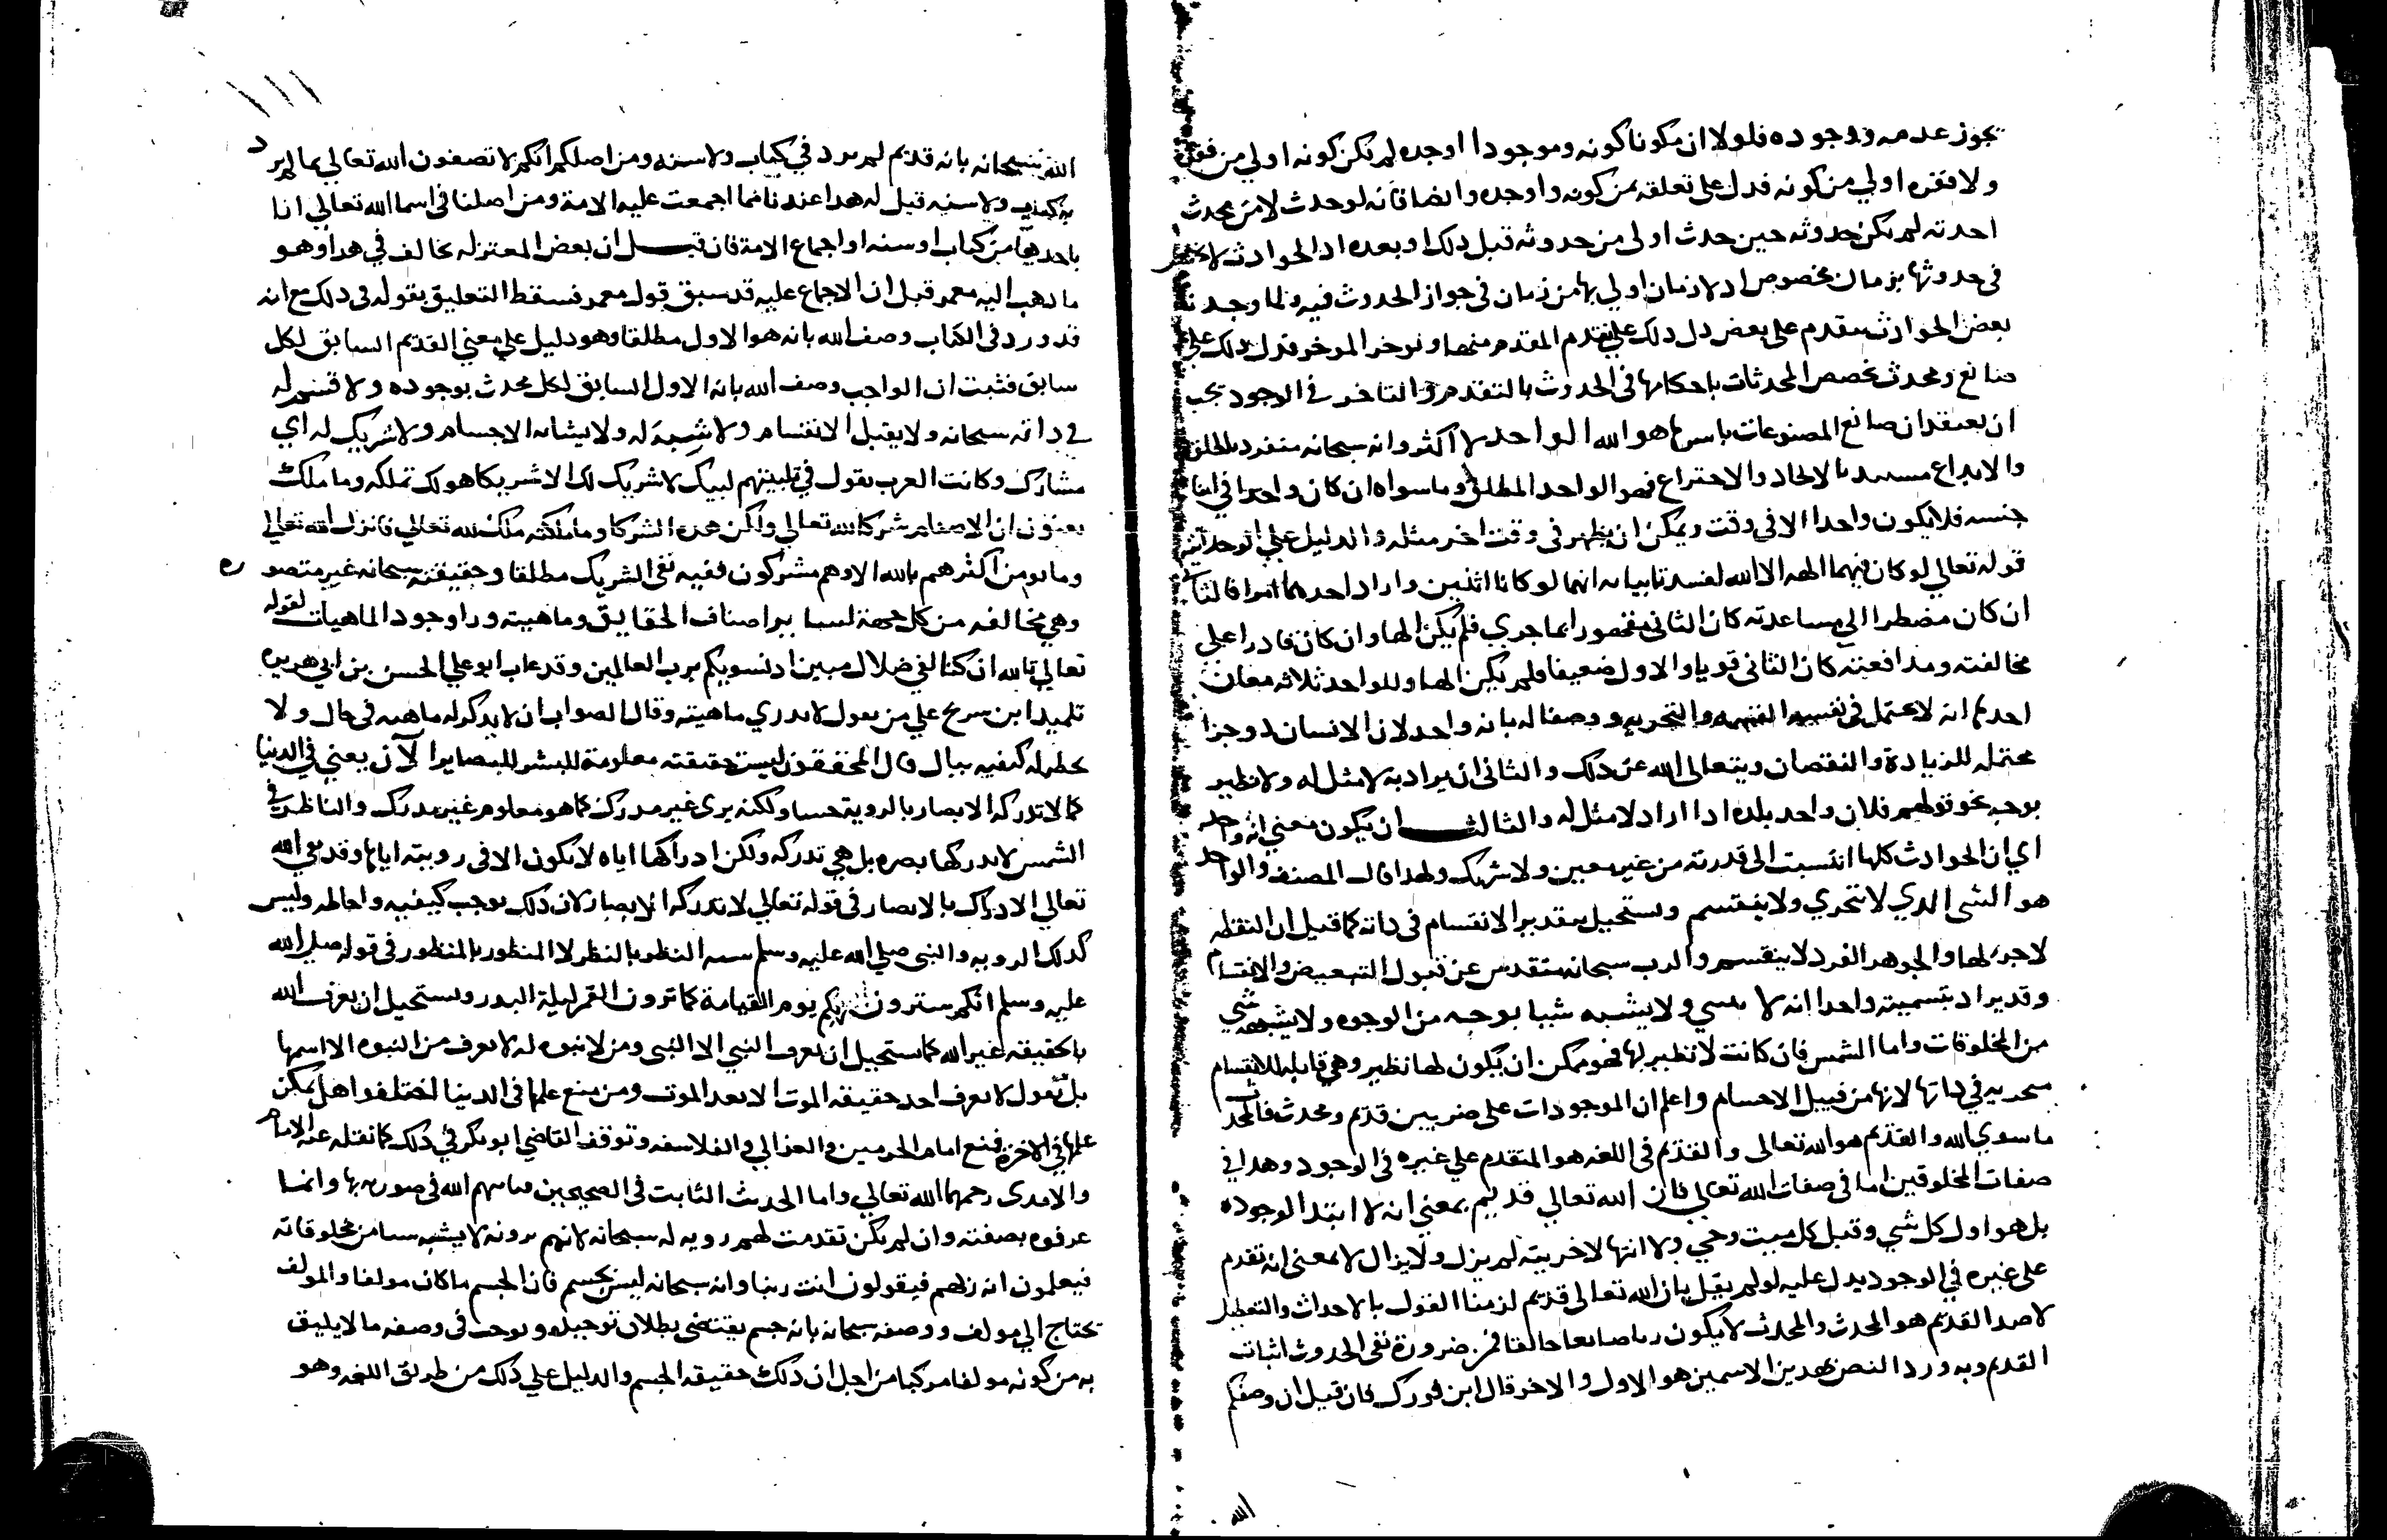 يجوز عدمه ووجوده فلولا ان مكونا كونه وموجودا اوجده لم يكن كونه اولي من
ولا فقره اولي من كونه فدل على تعلقه بمن كونه واوجده وايضا فانه لو حدث لا من محدث
احدثه لم يكن حدوثه حين حدث اولى من حدوثه قبل ذلك او بعده اذ الحوادث لا
في حدوثها بزمان مخصوص اذ لا زمان اولي بها من زمان في جواز الحدوث فيه ولما وجدنا
بعض الحوادث متقدم على بعض دل ذلك على تقدم المقدم منها وتوخر الموخر فدل ذلك على
صانع ومحدث خصص المحدثات باحكامها في الحدوث بالتقدم والتاخر في الوجود يجب
ان يعتقد ان صانع المصنوعات باسرها هو الله الواحد لا اكثر وانه سبحانه منفرد بالخلق
والابداع مستبد بالايجاد والاختراع فهو الواحد المطلق وما سواه ان كان واحدا في
جنسه فلا يكون واحدا الا في وقت ويمكن ان يظهر في وقت اخر مثله والدليل على الوحدانية
قوله تعالي لو كان فيهما الهة الا الله لفسدتا بيانه انهما لو كانا اثنين واراد احدهما امرا فالثاني
ان كان مضطرا الي مساعدته كان الثاني مقهورا بما جري فلم يكن الها وان كان قادرا على
مخالفته ومدافعته كان الثاني قويا والاول ضعيفا ولم يكن الها وللواحد ثلاثه معان
احدها انه لا يحتمل في نفسه القسمه والتجزيه ووصفنا له بانه واحد لان الانسان ذو جزا
محتمله للزيادة والنقصان ويتعالى الله عن ذلك والثاني ان يراد به لا مثل له ولا نظير
بوجه نحو قولهم فلان واحد بلده اذا اراد لا مثل له والثالث ان يكون معني انه واحد
اي ان الحوادث كلها انتسبت الى قدرته من غير معين ولا شريك ولهذا قال المصنف والواحد
هو الشي الذي لا يتجزي ولا ينقسم ويستحيل تقدير الانقسام في ذاته كما قيل ان النقطه
لا جزء لها والجوهر الفرد لا ينقسم والرب سبحانه متقدس عن قبول التبعيض والانقسام
وقد يراد بتسميته واحدا انه لا ولا يشبه شيبا بوجه من الوجوه ولا يشبهه شي
من المخلوقات واما الشمس فان كانت لا نظير لها فهو ممكن ان يكون لها نظير وهي قابله للانقسام
في ذاتها لانها من قبيل الاجسام واعلم ان الموجودات على ضربين قديم ومحدث فالمحدث
ما سوي الله والقديم هو الله تعالى والقديم في اللغه هو المتقدم علي غيره في الوجود وهذا في
صفات المخلوقين اما في صفات الله تعالي فان الله تعالي قديم بمعني انه لا ابتدا لوجوده
بل هو اول كل شي وقبل كل ميت وحي ولا انتها لاخريته لم يزل ولا يزال لا بمعنى انه تقدم
على غيره في الوجود يدل عليه لو لم يقل بان الله تعالى قديم لزمنا القول بالاحداث والتعطيل
لا ضد القديم هو المحدث والمحدث لا يكون ربا صانعا خالقا فمن ضرورة نفي الحدوث اثبات
القديم وبه ورد النص بهذين الاسمين هو الاول والاخر قال ابن فورك فان قيل ان وصفكم
الله
١١١
الله سبحانه بانه قديم لم يرد في كتاب ولا سنه ومن اصلكم انكم لا تصفون الله تعالي بما لم يرد
به كتاب ولا سنه قيل له هذا عندنا مما اجمعت عليه الامة ومن اصلنا في اسما الله تعالي انا
ناخذها من كتاب او سنه او اجماع الامة فان قيل ان بعض المعتزله يخالف في هذا وهو
ما ذهب اليه معمر قيل ان الاجماع عليه قد سبق قول معمر فسقط التعليق بقوله في ذلك مع انه
قد ورد في الكتاب وصف الله بانه هو الاول مطلقا وهو دليل على معني القديم السابق لكل
سابق فثبت ان الواجب وصف الله بانه الاول السابق لكل محدث بوجوده ولا قسيم له
في ذاته سبحانه ولا يقبل الانقسام ولا شبيه له ولا يشابه الاجسام ولا شريك له اي
مشارك وكانت العرب تقول في تلبيتهم لبيك لا شريك لك الا شريكا هو لك تملكه وما ملك
يعنون ان الاصنام شركا لله تعالي ولكن هذه الشركا وما ملكته ملك لله تعالي فانزل الله تعالي
وما يومن اكثرهم بالله الا وهم مشركون ففيه نفي الشريك مطلقا وحقيقته سبحانه غير متصوره
وهي مخالفه من كل جهة لساير اصناف الحقايق وماهيته ورا وجود الماهيات لقوله
تعالي تالله ان كنا لفي ضلال مبين اذ نسويكم برب العالمين وقد عاب ابو علي الحسن بن ابي هريره
تلميذ ابن سريج علي من يقول لا يدري ماهيته وقال الصواب ان لا يذكر له ماهيه في حال ولا
يخطر له كيفيه ببال قال المحققون ليست حقيقته معلومة للبشر للبصاير الآن يعني في الدنيا
كما لا تدركه الابصار بالروية حسا ولكنه يري غير مدرك كما هو معلوم غير مدرك والناظر في
الشمس لا يدركها بصره بل هي تدركه ولكن ادراكها اياه لا يكون الا في رويته اياها وقد نفي الله
تعالي الادراك بالابصار في قوله تعالي لا تدركه الابصار لان ذلك يوجب كيفيه واحاطه وليس
كذلك الرويه والنبي صلي الله عليه وسلم شبه النظر بالنظر لا المنظور بالمنظور في قوله صلى الله
عليه وسلم انكم سترون ربكم يوم القيامة كما ترون القمر ليلة البدر ويستحيل ان يعرف الله
بالحقيقه غير الله كما يستحيل ان يعرف النبي الا النبي ومن لا نبوه له لا يعرف من النبوه الا اسمها
بل نقول لا يعرف احد حقيقه الموت الا بعد الموت ومن منع علمها في الدينا اختلفوا هل يمكن
علمها في الاخرة فمنع امام الحرمين والغزالي والفلاسفه وتوقف القاضي ابو بكر في ذلك كما نقله عنه الامام
والامدى رحمهما الله تعالي واما الحديث الثابت في الصحيحين فياتيهم الله في صوره بها وانما
عرفوه بصفته وان لم يكن تقدمت لهم رويه له سبحانه لانهم يرونه لا يشبه شيا من مخلوقاته
فيعلمون انه ربهم فيقولون انت ربنا وانه سبحانه ليس بجسم فان الجسم ما كان مولفا والمولف
يحتاج الي مولف ووصفه سبحانه بانه جسم يقتضي بطلان توحيده ويوجب في وصفه ما لا يليق
به من كونه مولفا مركبا من اجل ان ذلك حقيقه الجسم والدليل علي ذلك من طريق اللغه وهو